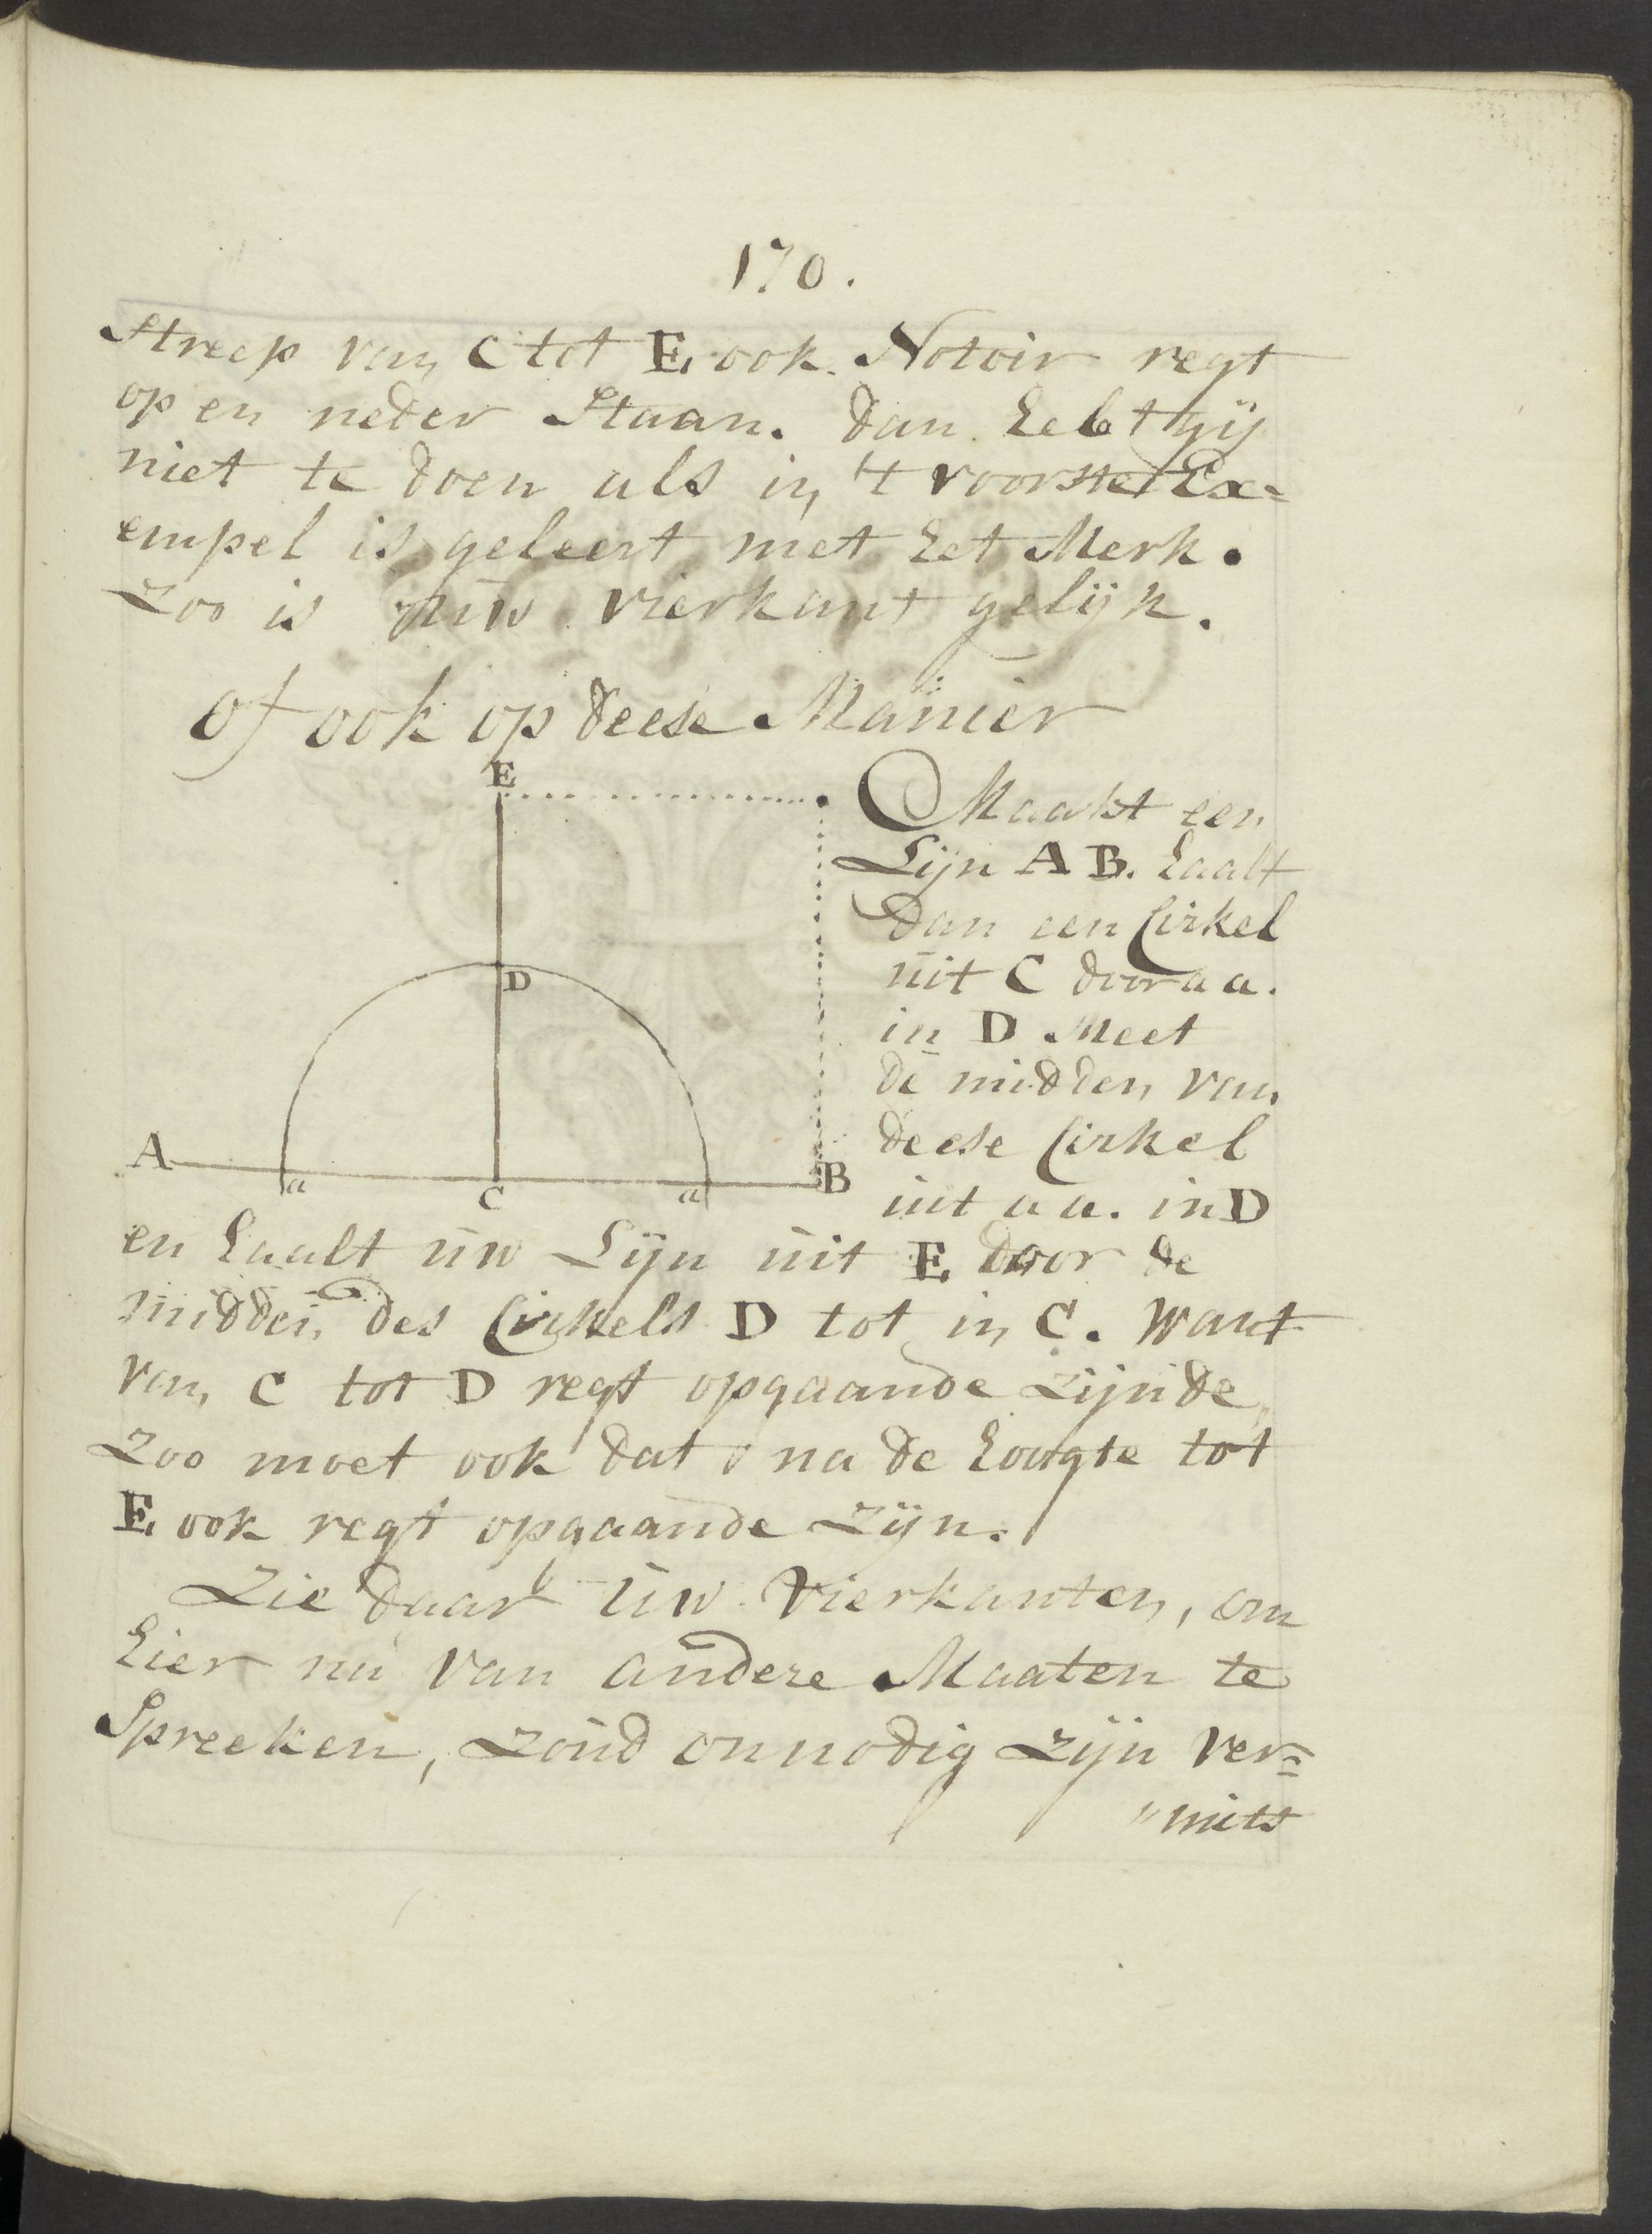 170.
Streep van C tot E ook Notoir regt
op en neder Staan. dan hebt gij
niet te doen als in 't voorste Ex=
empel is geleert met het Merk.
Zoo is uw vierkant gelijk.
of ook op deese Manier
E
D
A
a
C
a
B
Maakt een
Lijn A B. haalt
dan een Cirkel
uit C door a a.
in D Meet
de midden van
deese Cirkel
uit a a. in D
en haalt uw Lijn uit E door de
midden des Cirkels D tot in C. want
van C tot D regt opgaande zijnde,
zoo moet ook dat na de hoogte tot
E ook regt opgaande zijn.
Zie daar uw Vierkanten, om
hier nu van andere Maaten te
Spreeken, zoud onnodig zijn ver=
"mits